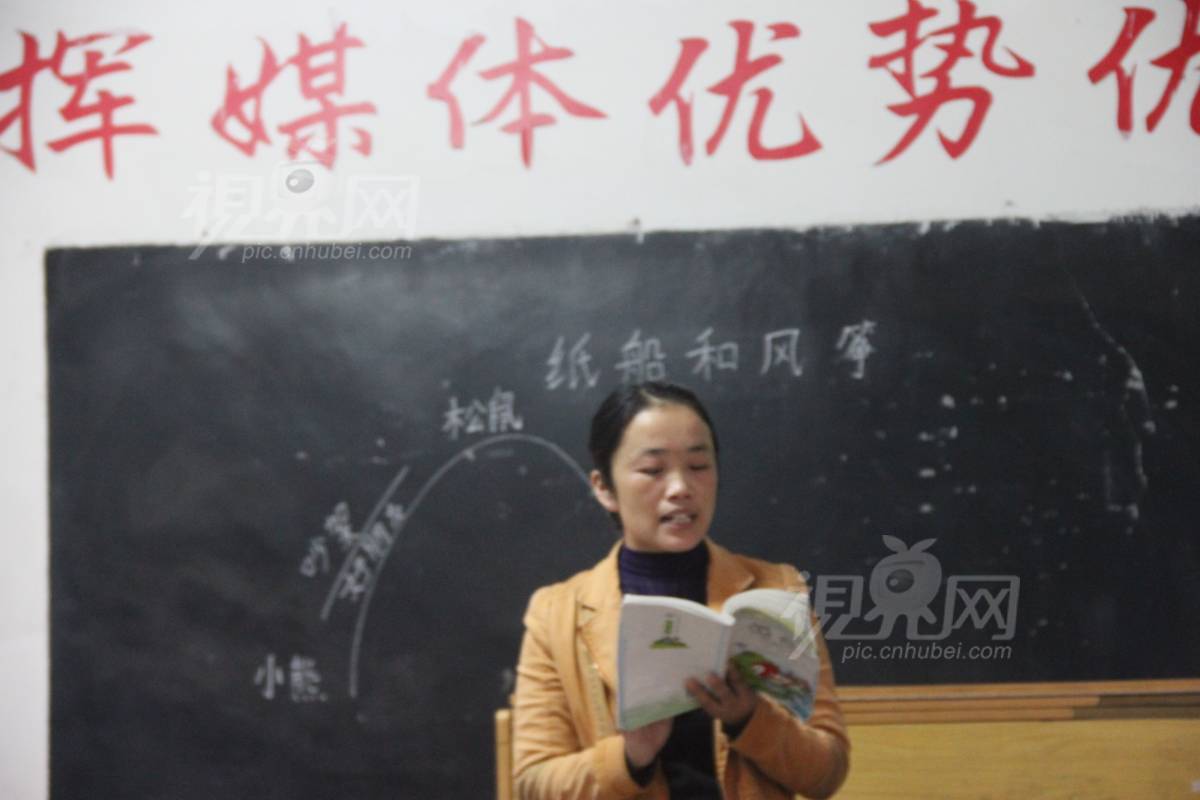 挥媒体优势优
视界网
pic.cnhubei.com
纸船和风筝
松鼠
吵架
好朋友
小熊
视界网
pic.cnhubei.com